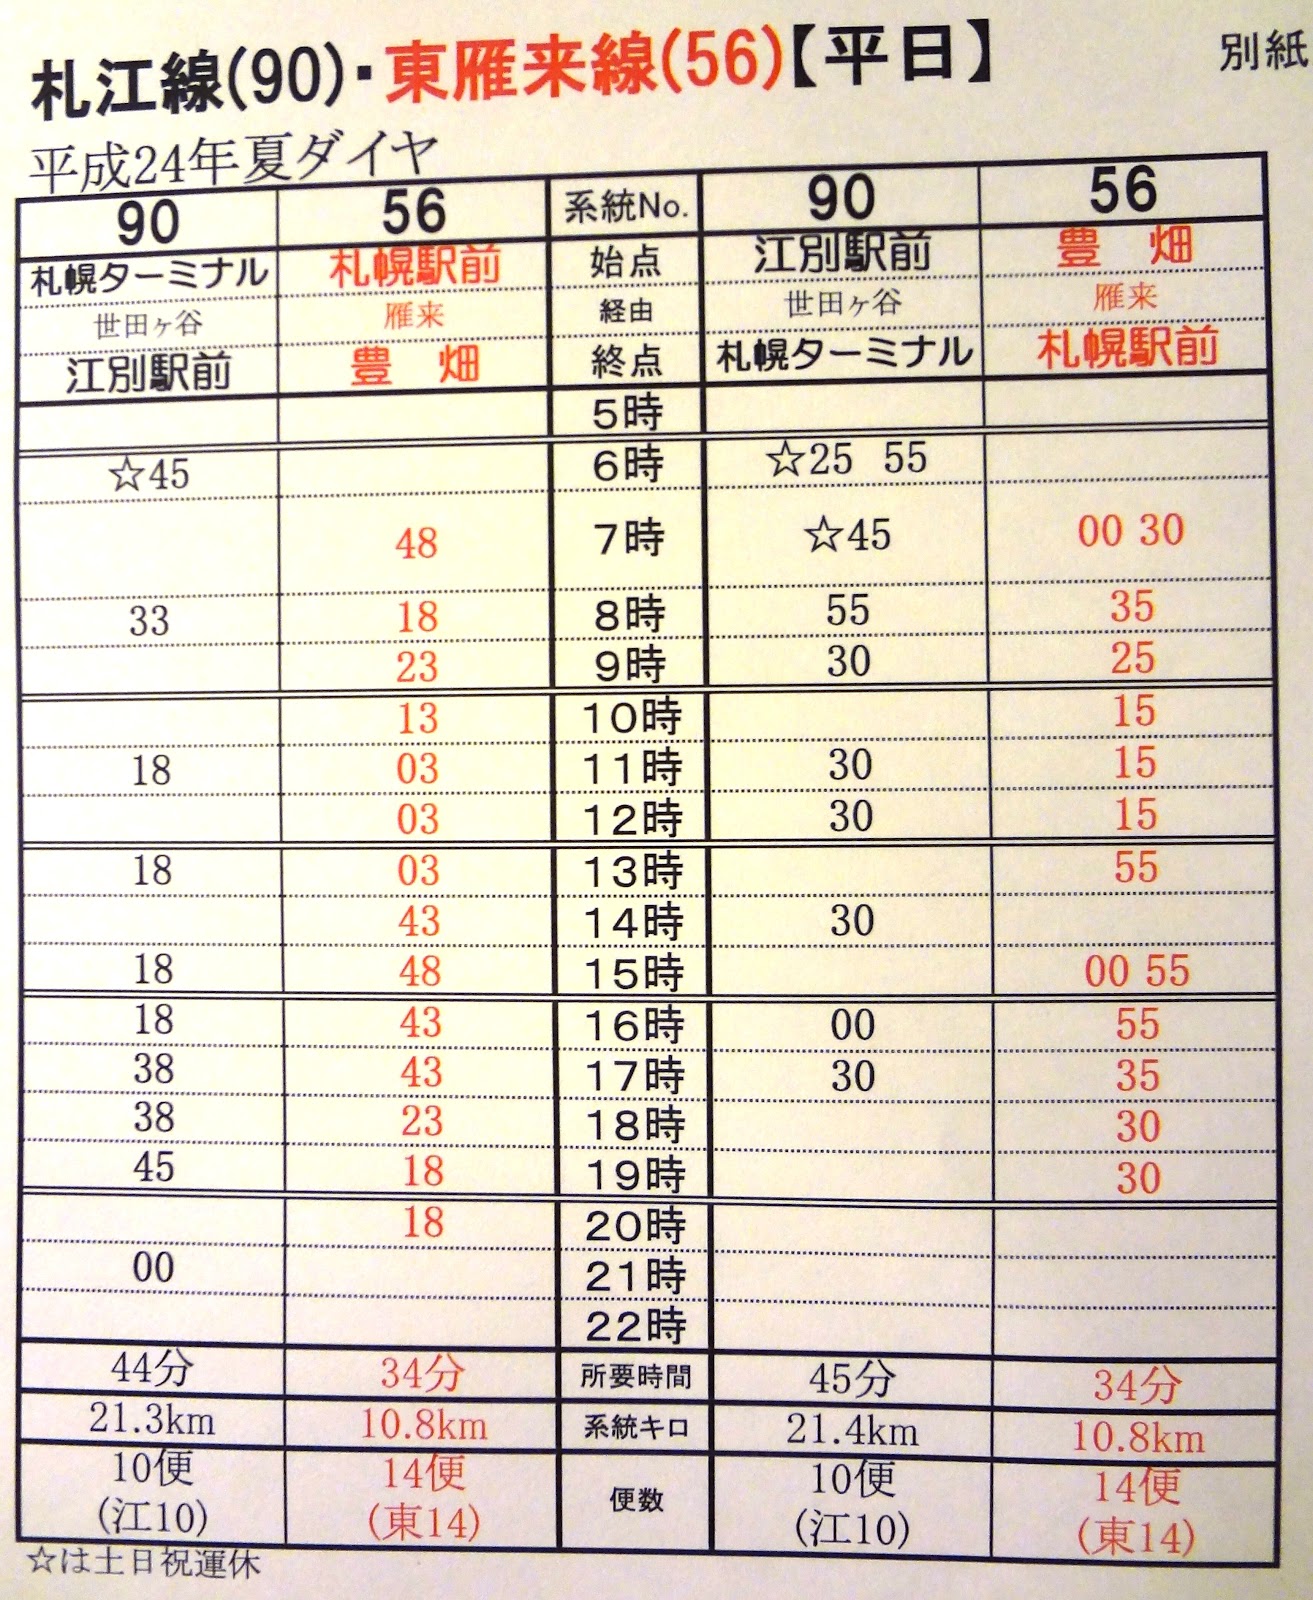 札江線(90)・東雁来線(56)【平日】 別紙
平成24年夏ダイヤ
90 56 系統No. 90 56
札幌ターミナル 札幌駅前 始点 江別駅前 豊 畑
世田ヶ谷 雁来 経由 世田ヶ谷 雁来
江別駅前 豊 畑 終点 札幌ターミナル 札幌駅前
5時
☆45 6時 ☆25 55
48 7時 ☆45 00 30
33 18 8時 55 35
23 9時 30 25
13 10時 15
18 03 11時 30 15
03 12時 30 15
18 03 13時 55
43 14時 30
18 48 15時 00 55
18 43 16時 00 55
38 43 17時 30 35
38 23 18時 30
45 18 19時 30
18 20時
00 21時
22時
44分 34分 所要時間 45分 34分
21.3km 10.8km 系統キロ 21.4km 10.8km
10便 14便 便数 10便 14便
(江10) (東14) (江10) (東14)
☆は土日祝運休